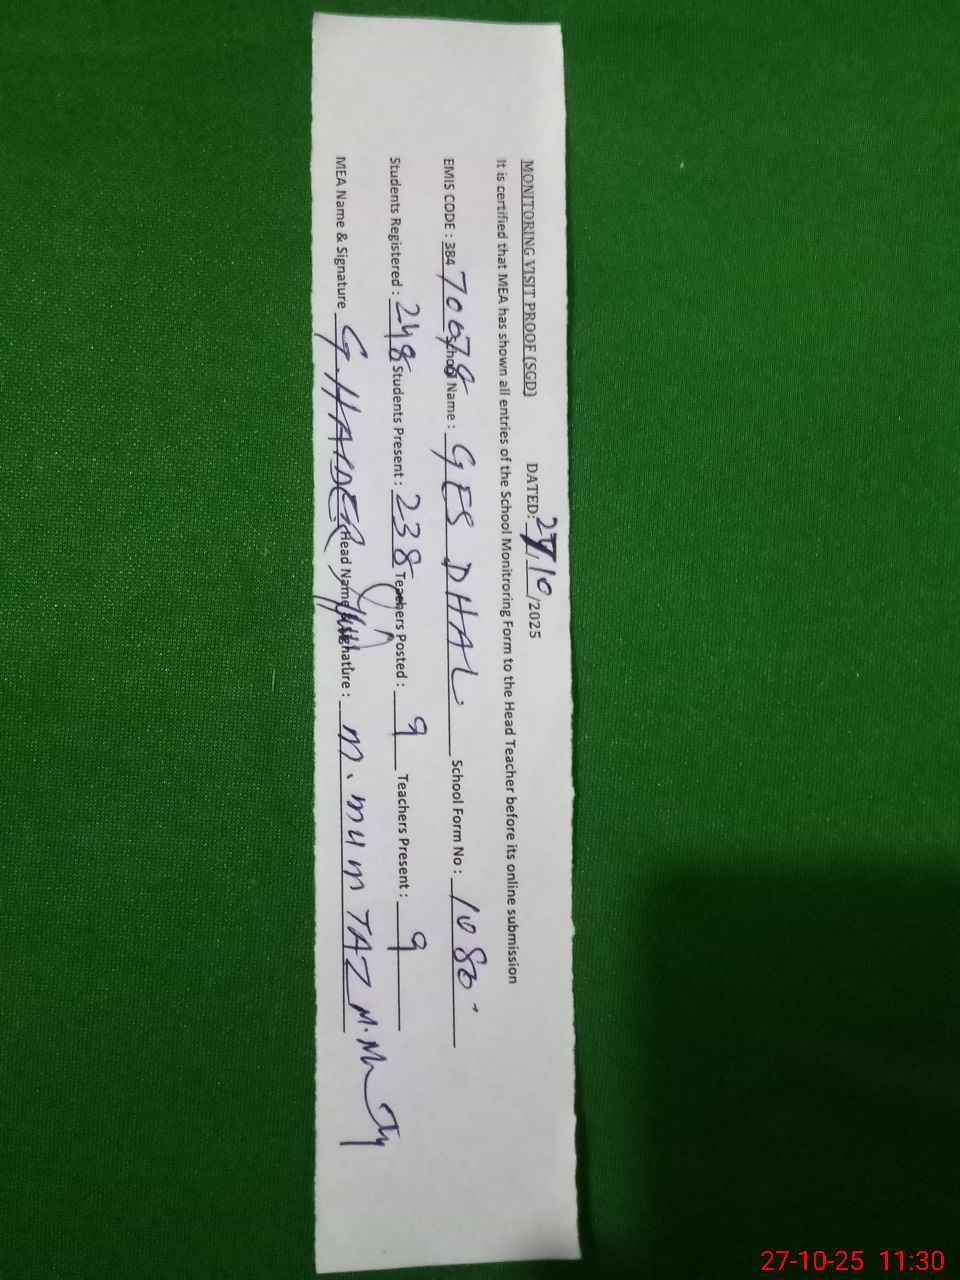 MONITORING VISIT PROOF (SGD) DATED: 27/10/2025
It is certified that MEA has shown all entries of the School Monitroring Form to the Head Teacher before its online submission
EMIS CODE : 384 70078 School Name : GES DHAL School Form No : 1080
Students Registered : 248 Students Present : 238 Teachers Posted : 9 Teachers Present : 9
MEA Name & Signature G. HAIDER Head Name & Signature : M. MUMTAZ
27-10-25 11:30